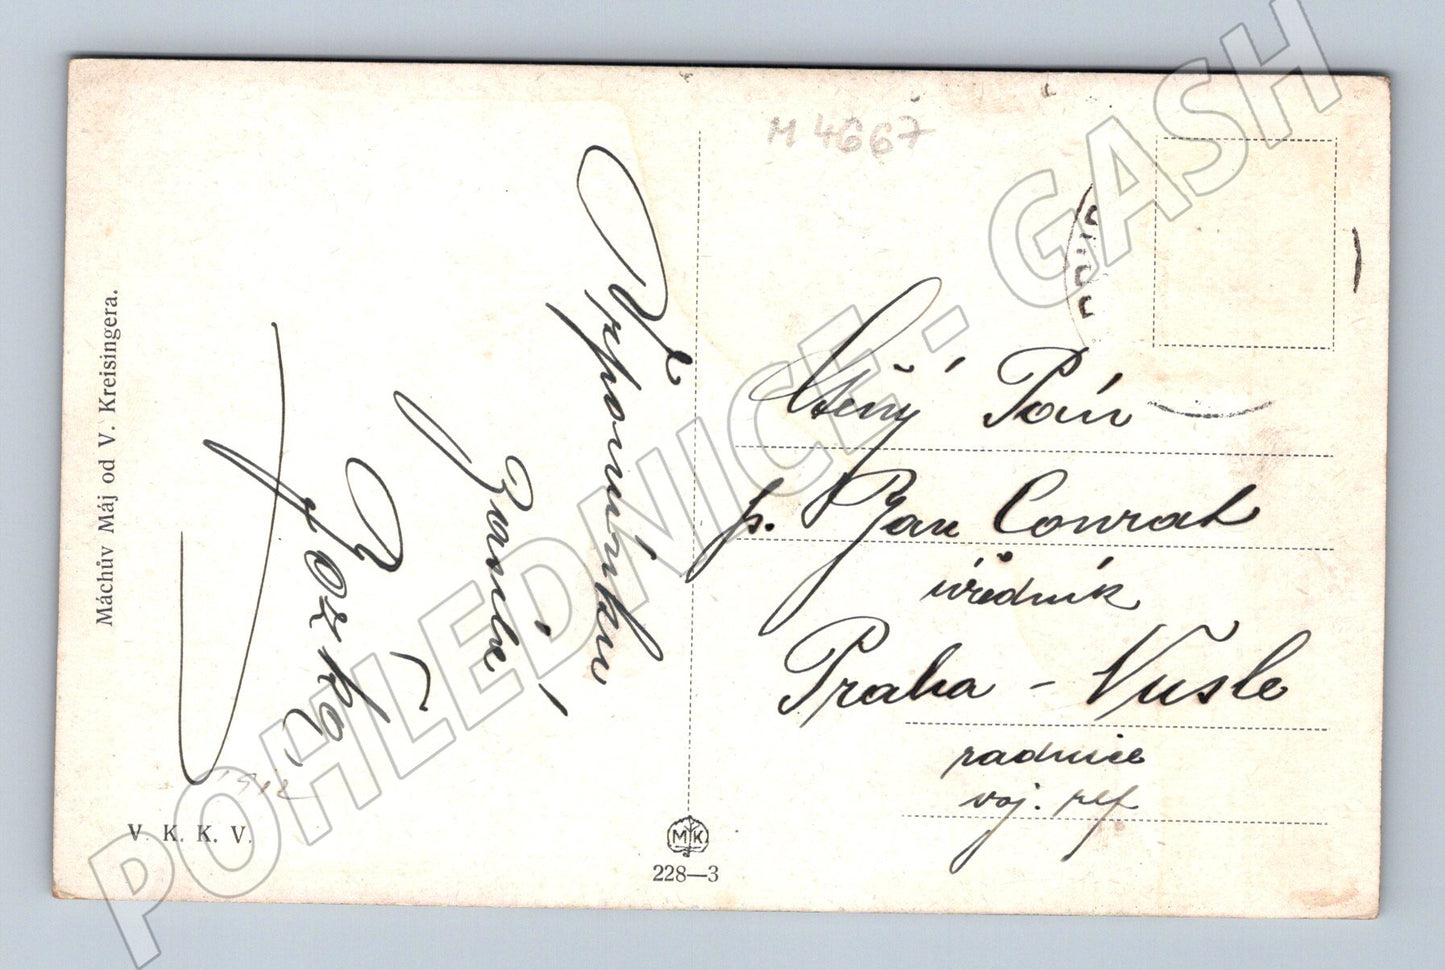 M 4667
Máchův Máj od V. Kreisingera.
Vzpomínku
zasílá
Ctěný Pán
p. Jan Conrat
úředník
Praha - Nusle
radnice
voj. ref
1912
V. K. K. V.
MK
228—3
POHLEDNICE - GASH